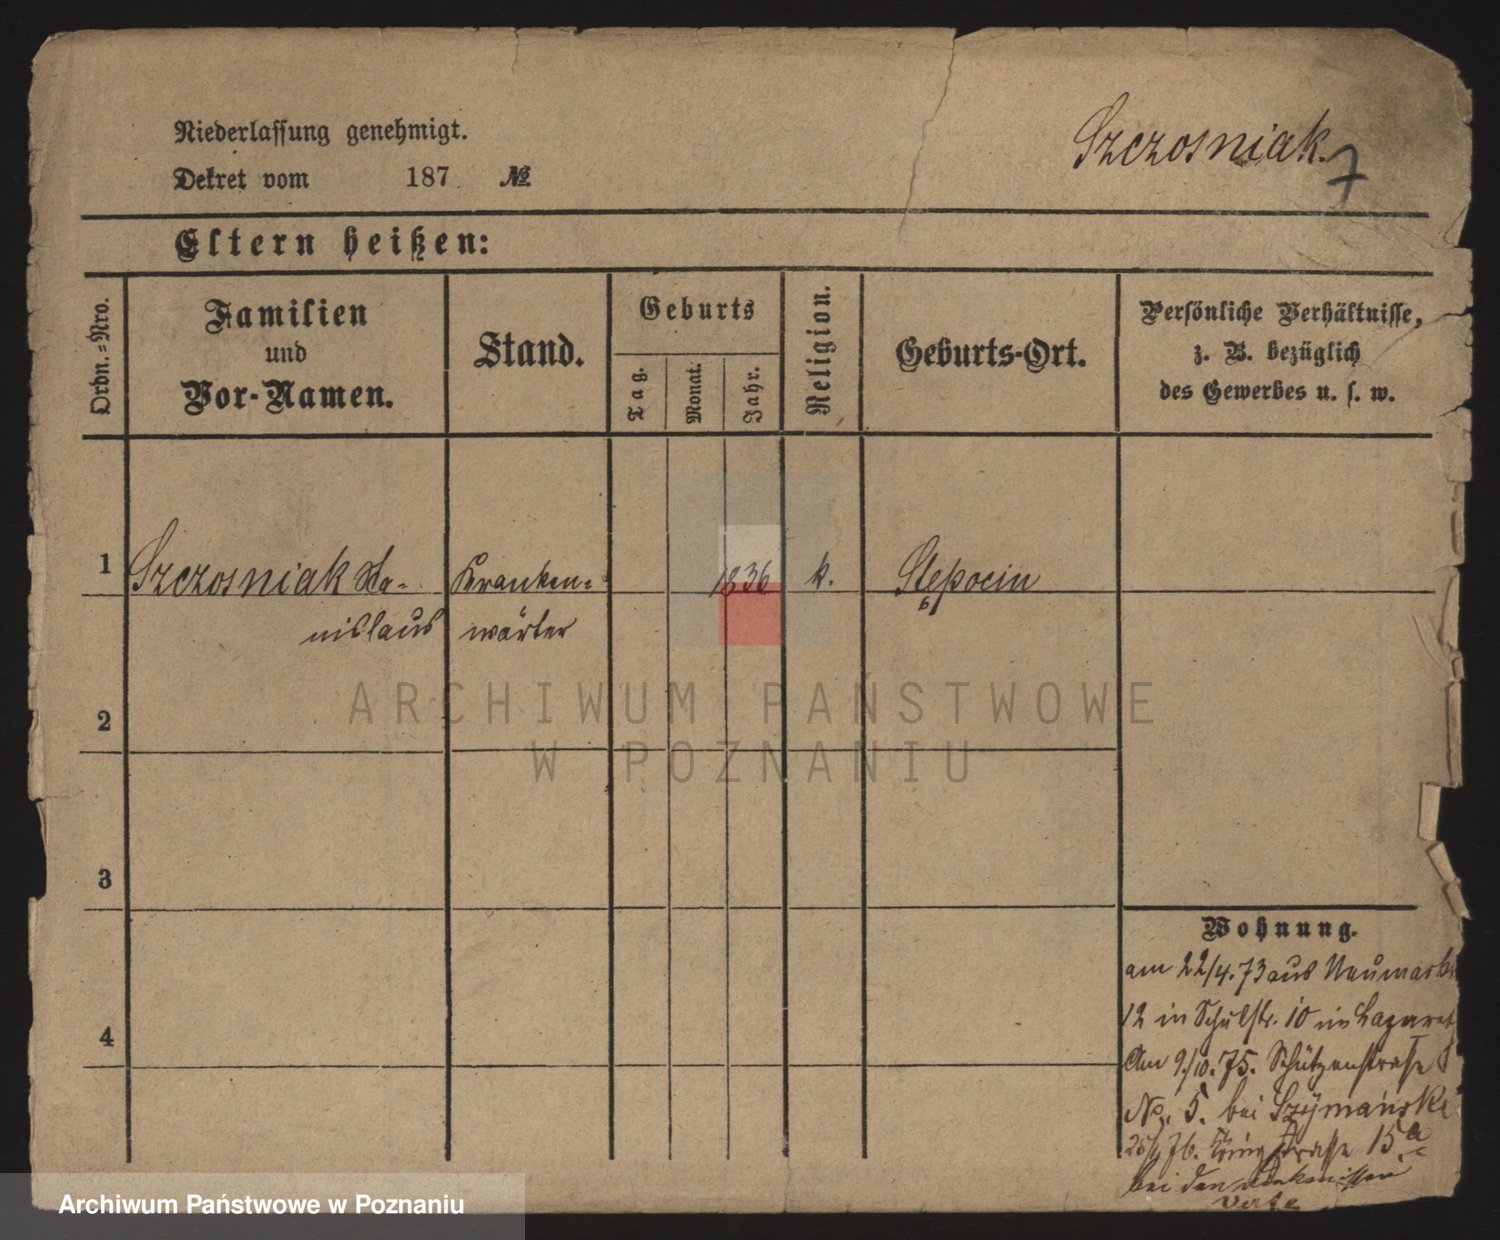 Niederlassung genehmigt.
Dekret vom 187 №
Szczosniak.
7
Eltern heißen:
Ordn.=Nro.
Familien
und
Vor-Namen.
Stand.
Geburts
Tag.
Monat.
Jahr.
Religion.
Geburts-Ort.
Persönliche Verhältnisse,
z. B. bezüglich
des Gewerbes u. s. w.
1
Szczosniak Sta-
nislaus
Kranken-
wärter
1836
k.
Stępocin
2
3
4
Wohnung.
am 22/4.73 aus Neumarkt
12 in Schulstr. 10 im Lazaret
Am 9/10.75. Schützenstrasse
No. 5. bei Szymański
76. Königstrasse 15a
bei den Diakonissen
Verte
ARCHIWUM PAŃSTWOWE
W POZNANIU
Archiwum Państwowe w Poznaniu